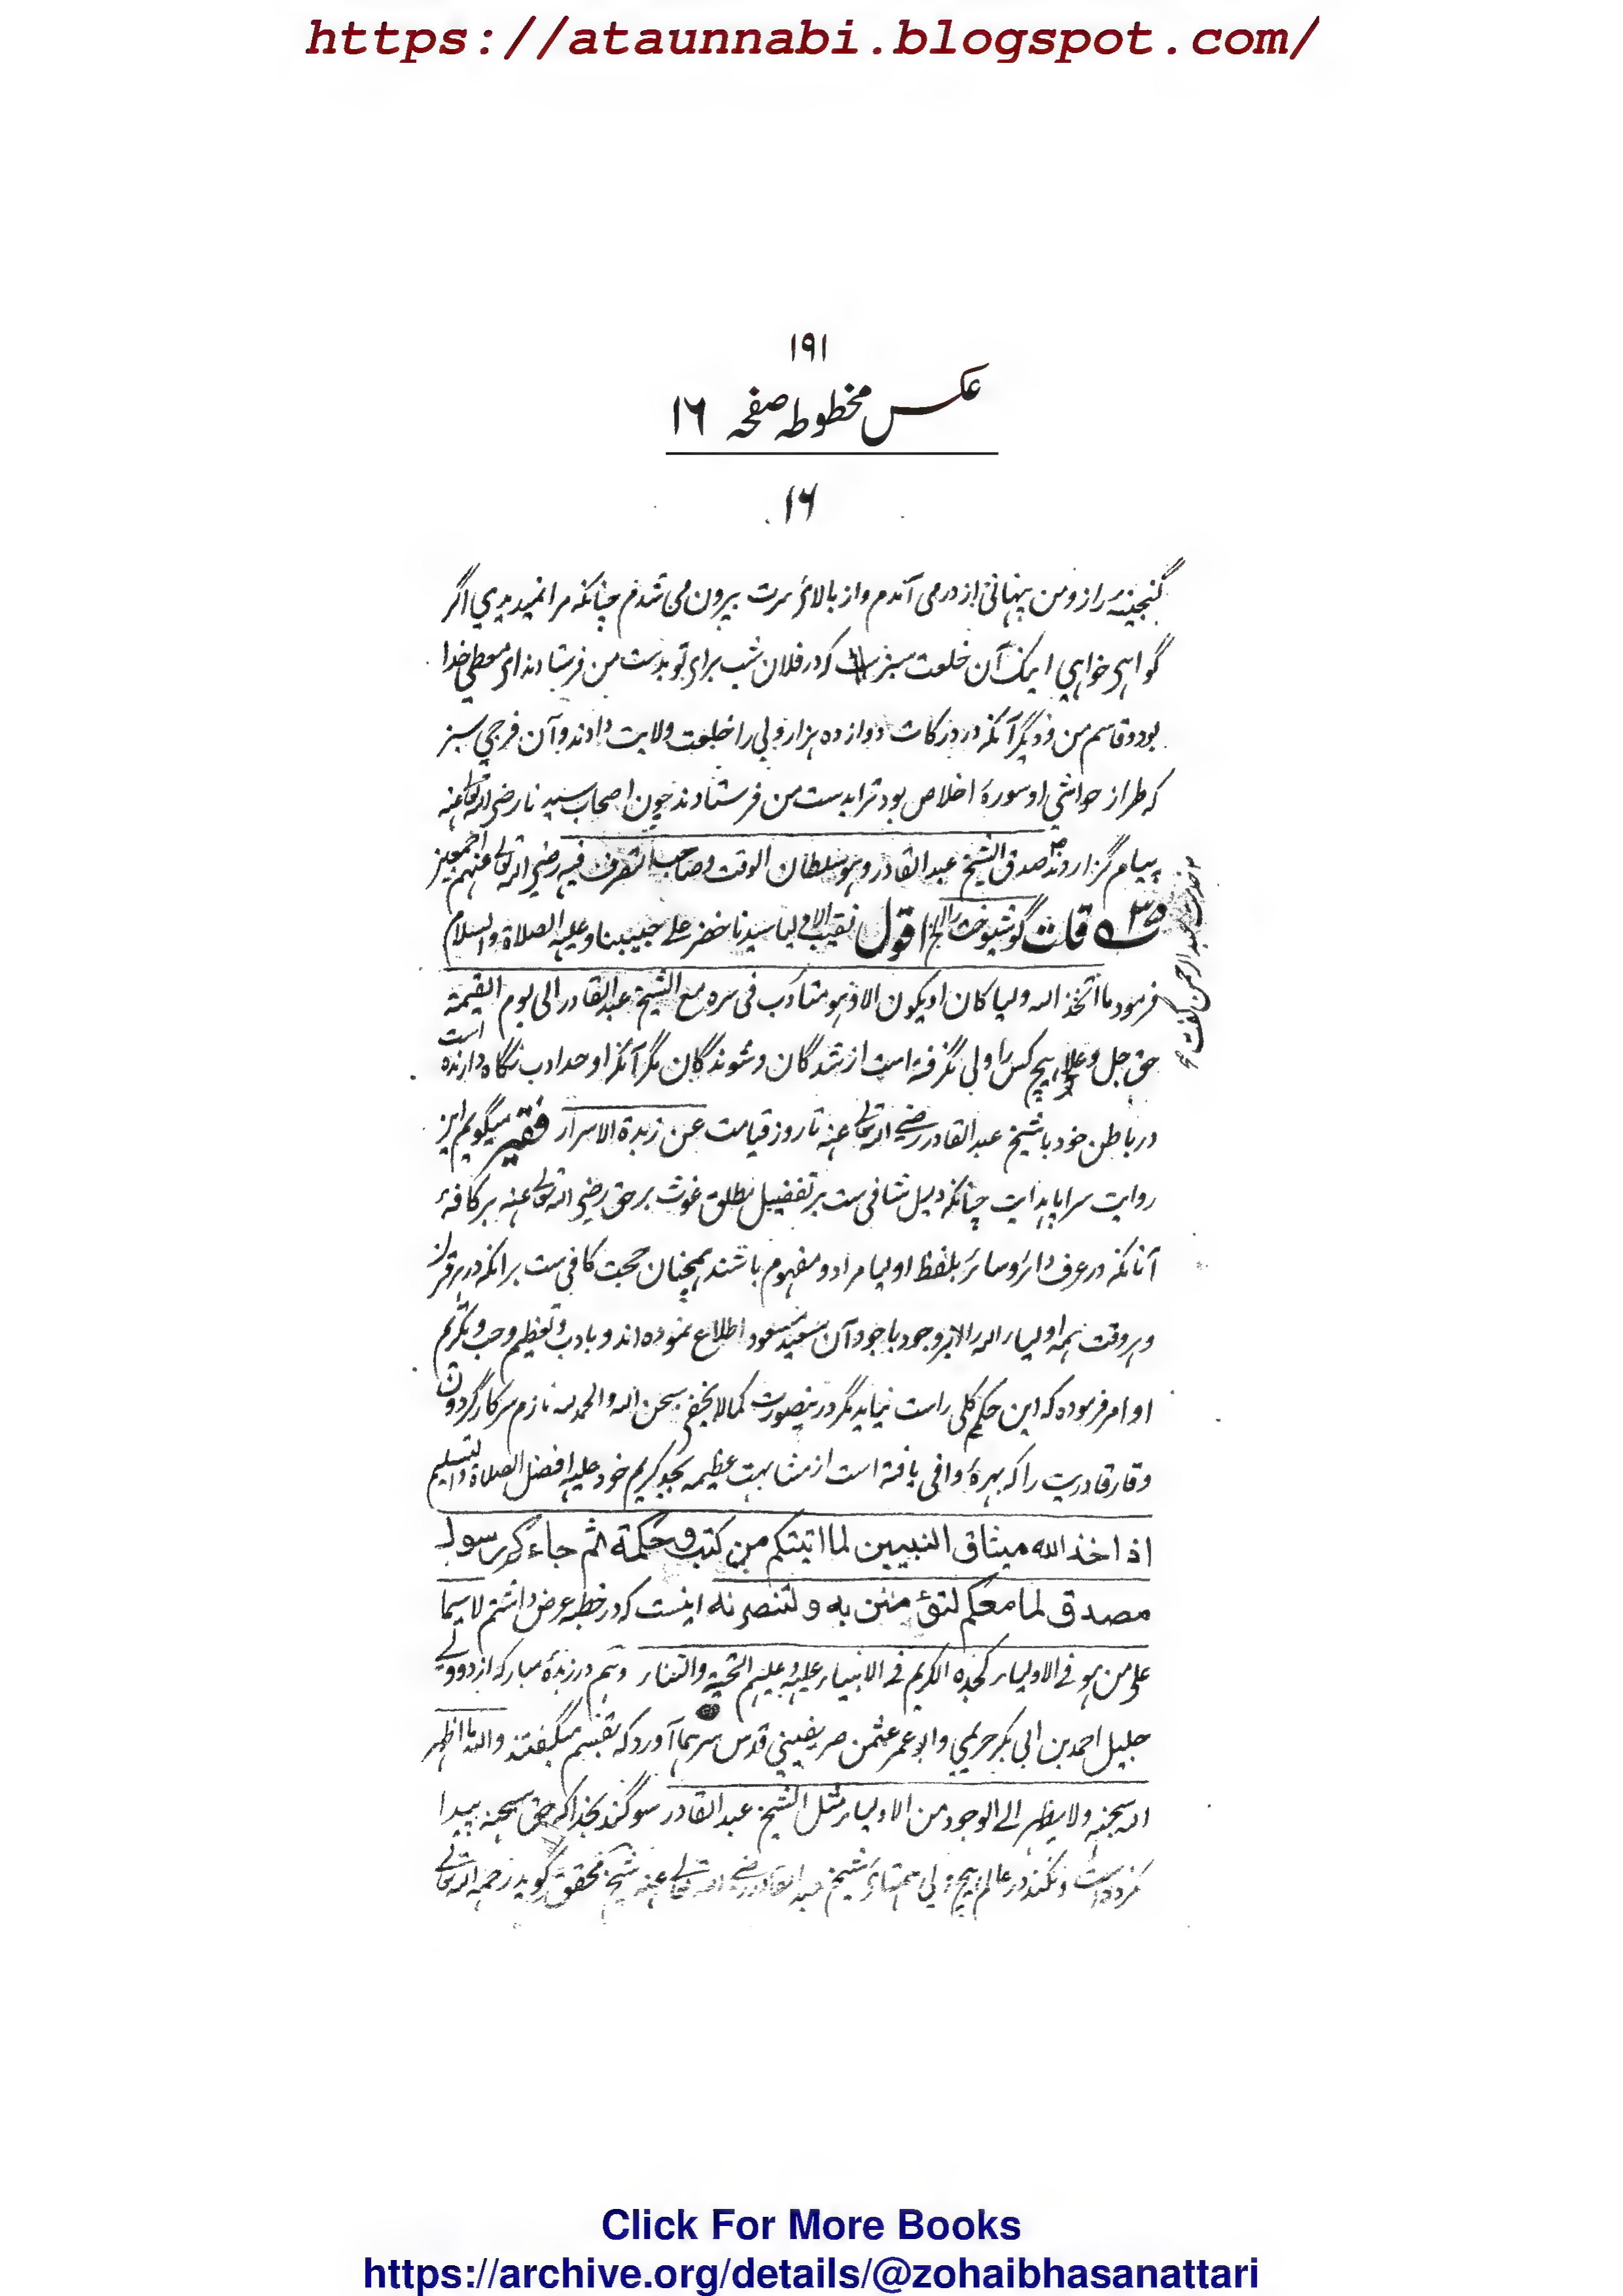 https://ataunnabi.blogspot.com/
۱۹۱
عکس مخطوطہ صفحہ ۱۶
۱۶
گنجینۂ راز و من پنہانی از در می آمدم و از بالائے سرت بیرون می شدم چنانکہ مرا نمیدیدی اگر
گواہی خواہی اینک آن خلعت سبز ست کہ در فلان شب برای تو بدست من فرستادند ای معطی خدا
بود و قاسم من و دیگر آنکہ در درکات دوازدہ ہزار ولی را خلعت ولایت دادند و آن فرجی سبز
کہ طراز حواشی او سورۂ اخلاص بود ترا بدست من فرستادند چون اصحاب سیدنا رضی اللہ تعالی عنہ
پیام گزاروند صدق الشیخ عبد القادر وہو سلطان الوقت وصاحب التصرف فیہ رضی اللہ تعالی عنہم اجمعین
قلت گو شیوخت را الخ اقول نقیب الاولیا سیدنا خضر علی حبیبنا وعلیہ الصلاۃ والسلام
عبد الرحمن گفت
فرمود ما اتخذ اللہ ولیا کان او یکون الا وہو متادب فی سرہ مع الشیخ عبد القادر الی یوم القیمۃ
حق جل وعلا ہیچ کس را ولی نگرفتہ است از شدگان و شوندگان مگر آنکہ او حد ادب نگاہ دارندہ است
در باطن خود با شیخ عبد القادر رضی اللہ تعالی عنہ تا روز قیامت عن زبدۃ الاسرار فقیر میگویم این
روایت سراپا ہدایت چنانکہ دلیل شافی ست بر تفضیل مطلق غوث برحق رضی اللہ تعالی عنہ بر کافۂ
آنانکہ در عرف دائر و سائر بلفظ اولیا مراد و مفہوم باشند ہمچنان حجت کافی ست برانکہ در ہر قرن
و ہر وقت ہمہ اولیاء اللہ را بر وجود باجود آن مسعود اطلاع نمودہ اند و بادب و تعظیم و حب و تکریم
او امر فرمودہ کہ این حکم کلی راست نیاید مگر درینصورت کما لا یخفی سبحن اللہ والحمد للہ نازم سرکار گردون
وقار قادریت را کہ بہرۂ وافی یافتہ است از مشابہت عظیمہ بجد کریم خود علیہ افضل الصلاۃ والتسلیم
اذ اخذ الله میثاق النبیین لما اتیتکم من کتب وحکمة ثم جاءکم رسول
مصدق لما معکم لتؤمنن به ولتنصرنه اینست کہ در خطبہ عرض داشتم لاسیما
علی من ہو فی الاولیاء کجدہ الکریم فی الانبیاء علیہ وعلیہم التحیۃ والثناء وہم در زبدۂ مبارکہ از دو ولی
جلیل احمد بن ابی بکر حریمی وابو عمر عثمن صریفینی قدس سرہما آورد کہ بقسم میگفتند واللہ ما اظہر
اللہ سبحنہ ولا یظہر الی الوجود من الاولیاء مثل الشیخ عبد القادر سوگند بخدا کہ حق سبحنہ پیدا
نکردہ است و نکند در عالم ہیچ ولی ہمتائے شیخ عبد القادر رضی اللہ تعالی عنہ شیخ محقق گوید رحمہ اللہ تعالی
Click For More Books
https://archive.org/details/@zohaibhasanattari